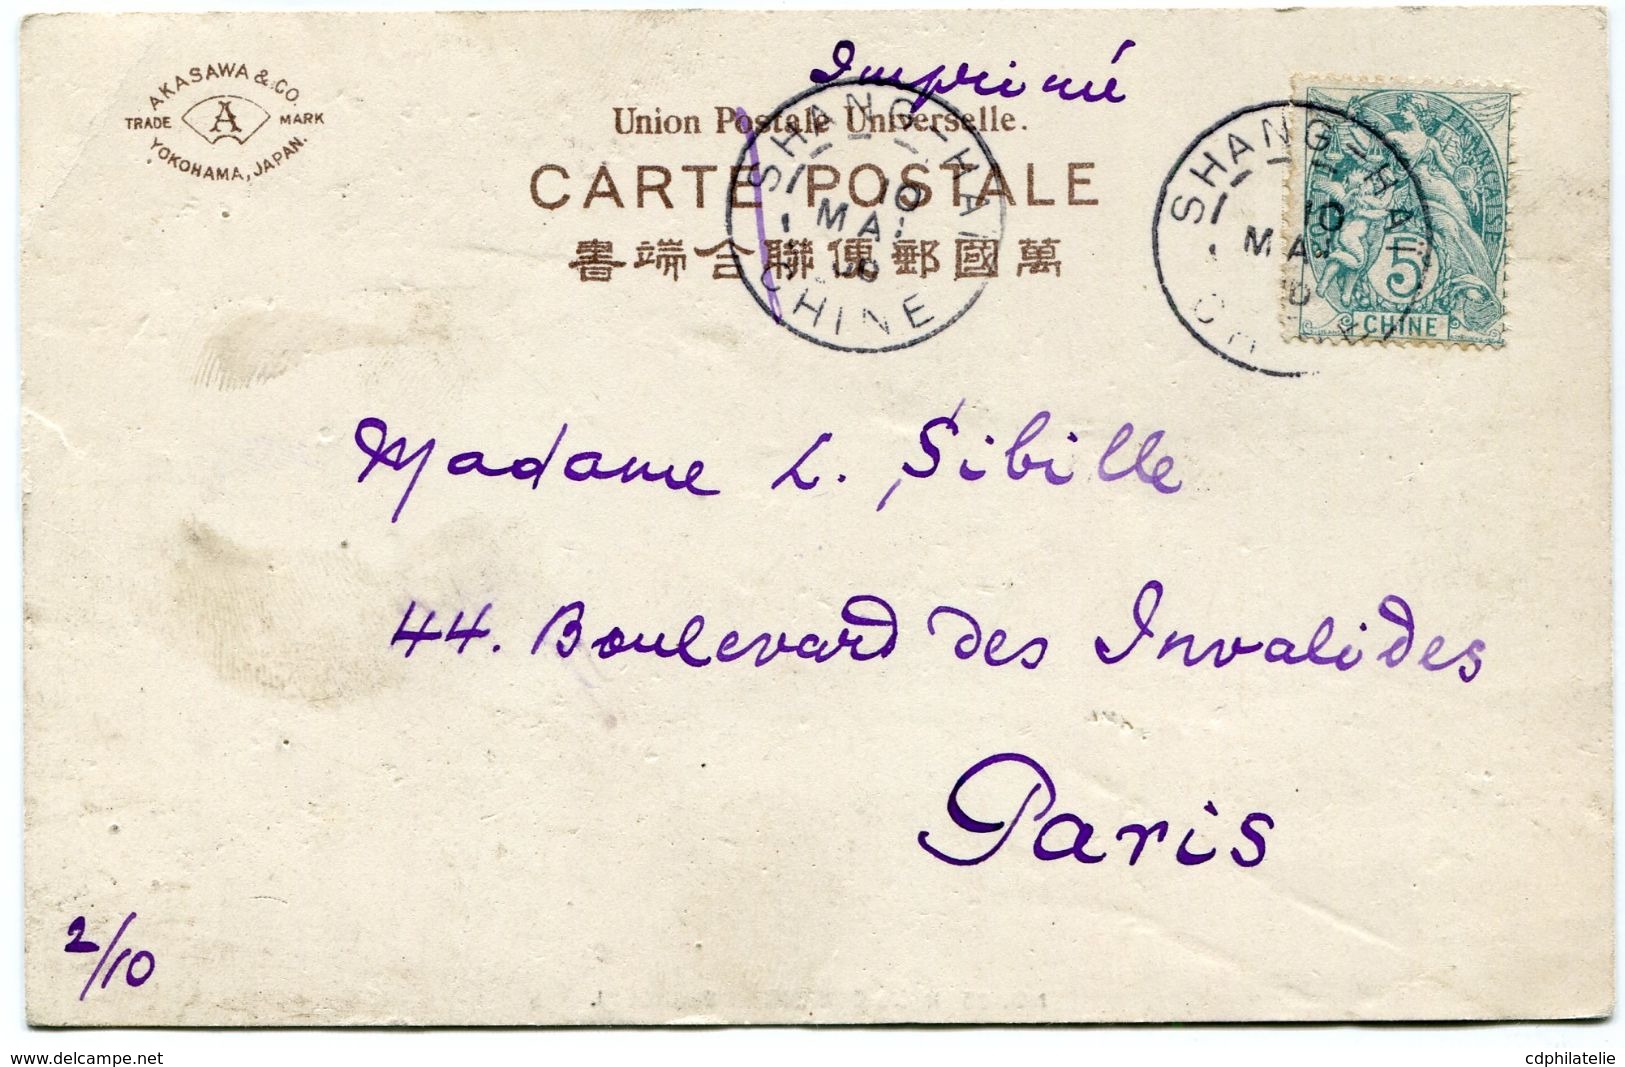 Imprimé
AKASAWA & CO.
TRADE A MARK
YOKOHAMA, JAPAN.
Union Postale Universelle.
CARTE POSTALE
書端合聯便郵國萬
SHANG-HAI
1
10
MAI
CHINE
SHANG-HAI
1
10
MAI
FRANÇAISE
5
CHINE
Madame L. Sibille
44. Boulevard des Invalides
Paris
2/10
www.delcampe.net
cdphilatelie